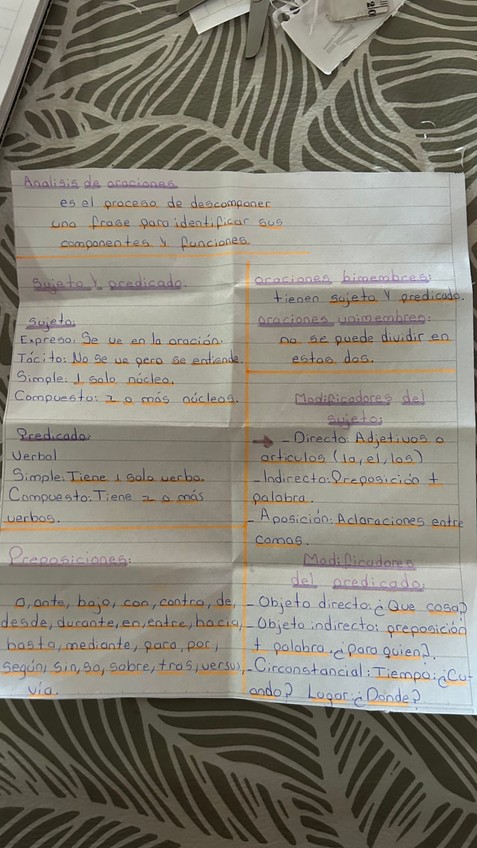 Analisis de oraciones
es el proceso de descomponer
una frase para identificar sus
componentes y funciones.
Sujeto y predicado.
Sujeto
Expreso: Se ve en la oración.
Tácito: No se ve pero se entiende.
Simple: 1 solo núcleo.
Compuesto: 2 o más núcleos.
Predicado
Verbal
Simple: Tiene 1 solo verbo.
Compuesto: Tiene 2 o más
verbos.
Preposiciones:
a, ante, bajo, con, contra, de,
desde, durante, en, entre, hacia,
hasta, mediante, para, por,
según, sin, so, sobre, tras, versus,
vía.
oraciones bimembres:
tienen sujeto y predicado.
oraciones unimembres:
no se puede dividir en
estas dos.
Modificadores del
sujeto:
→ - Directo: Adjetivos o
artículos (la, el, los)
- Indirecto: Preposición +
palabra.
- Aposición: Aclaraciones entre
comas.
Modificadores
del predicado:
- Objeto directo: ¿Que cosa?
- Objeto indirecto: preposición
+ palabra. ¿Para quien?.
- Circonstancial: Tiempo: ¿Cu-
ando? Lugar: ¿Donde?